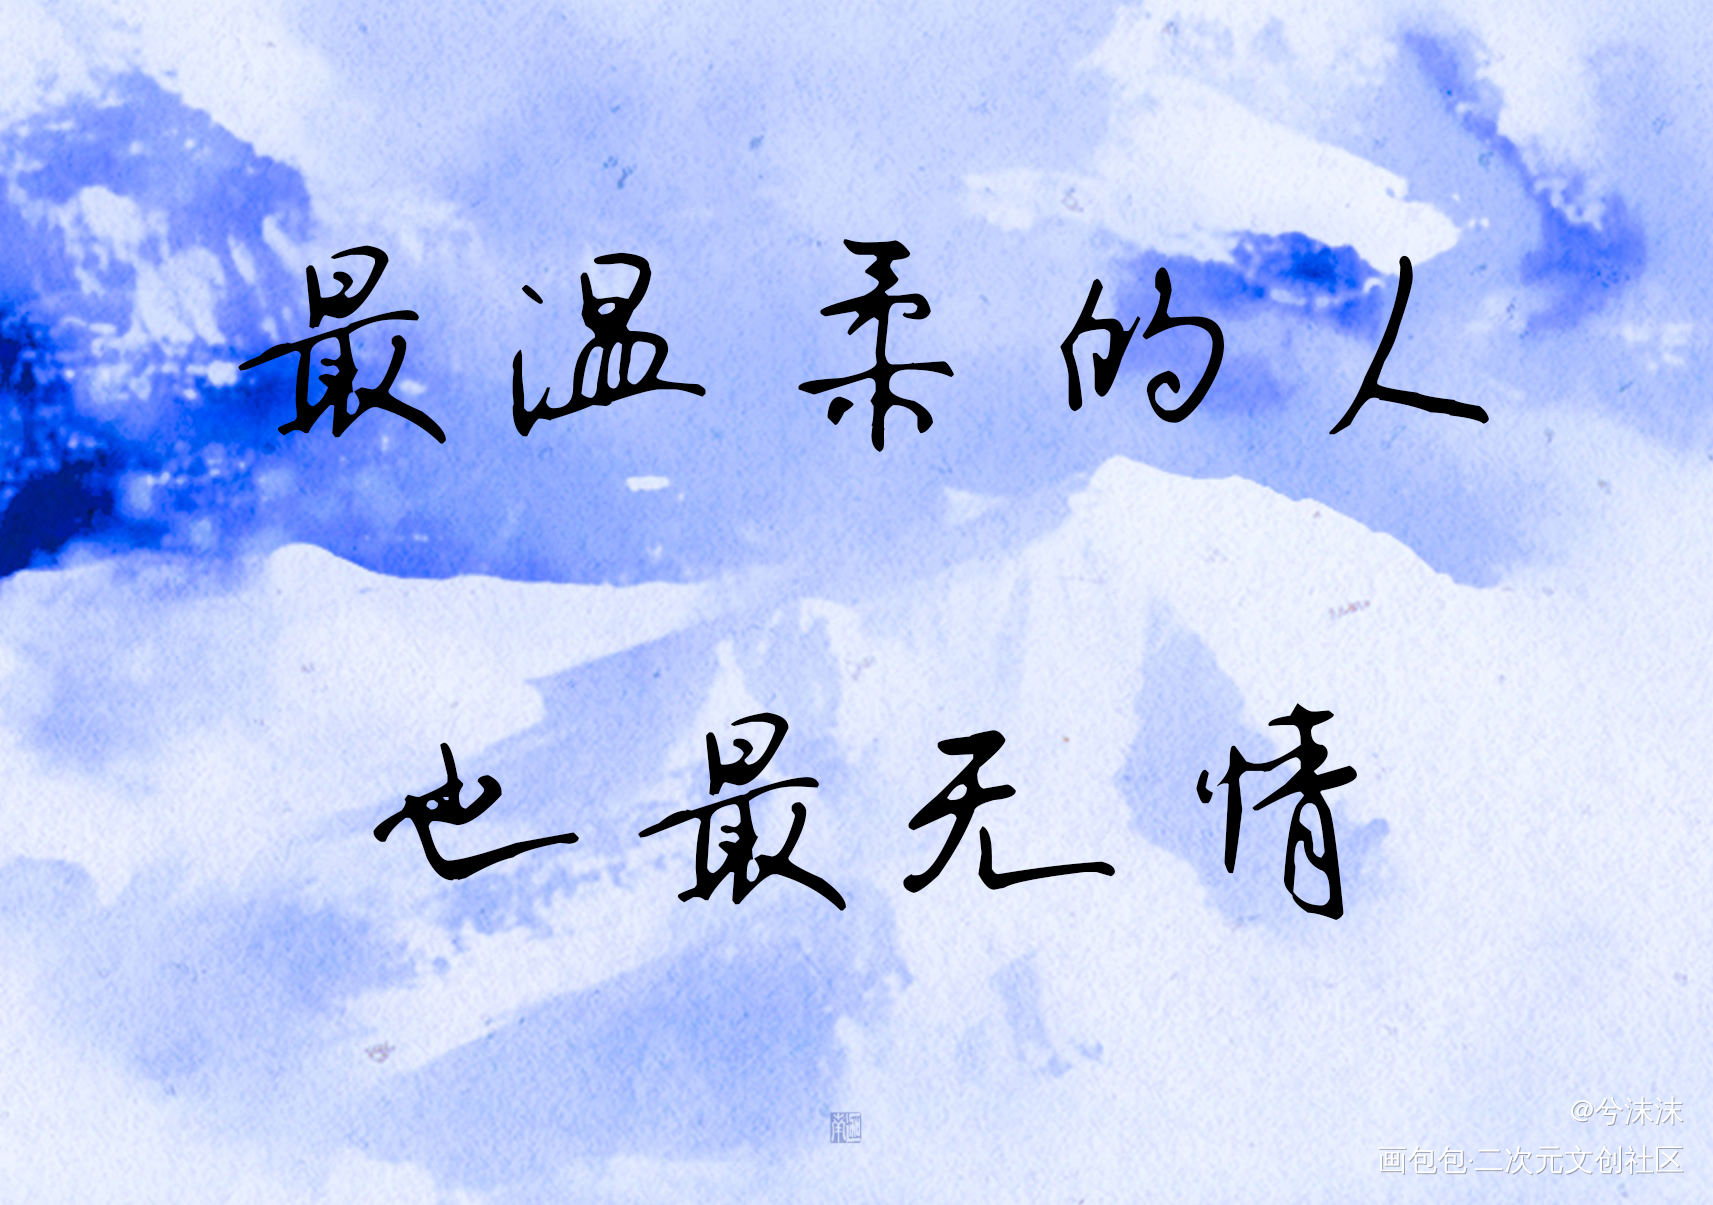 最温柔的人
也最无情
@兮沫沫
画包包·二次元文创社区